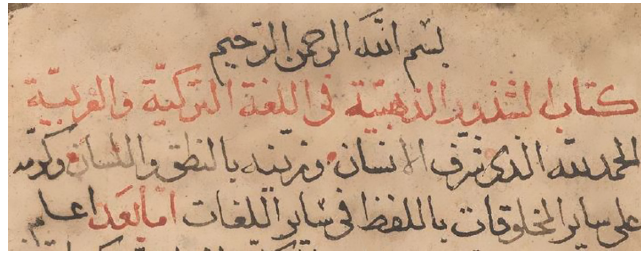 بسم الله الرحمن الرحيم
كتاب الشذور الذهبية فى اللغة التركية والعربية
الحمد لله الذى شرف الانسان وزينه بالنطق واللسان وكرمه
على ساير المخلوقات باللفظ فى ساير اللغات اما بعد اعلم